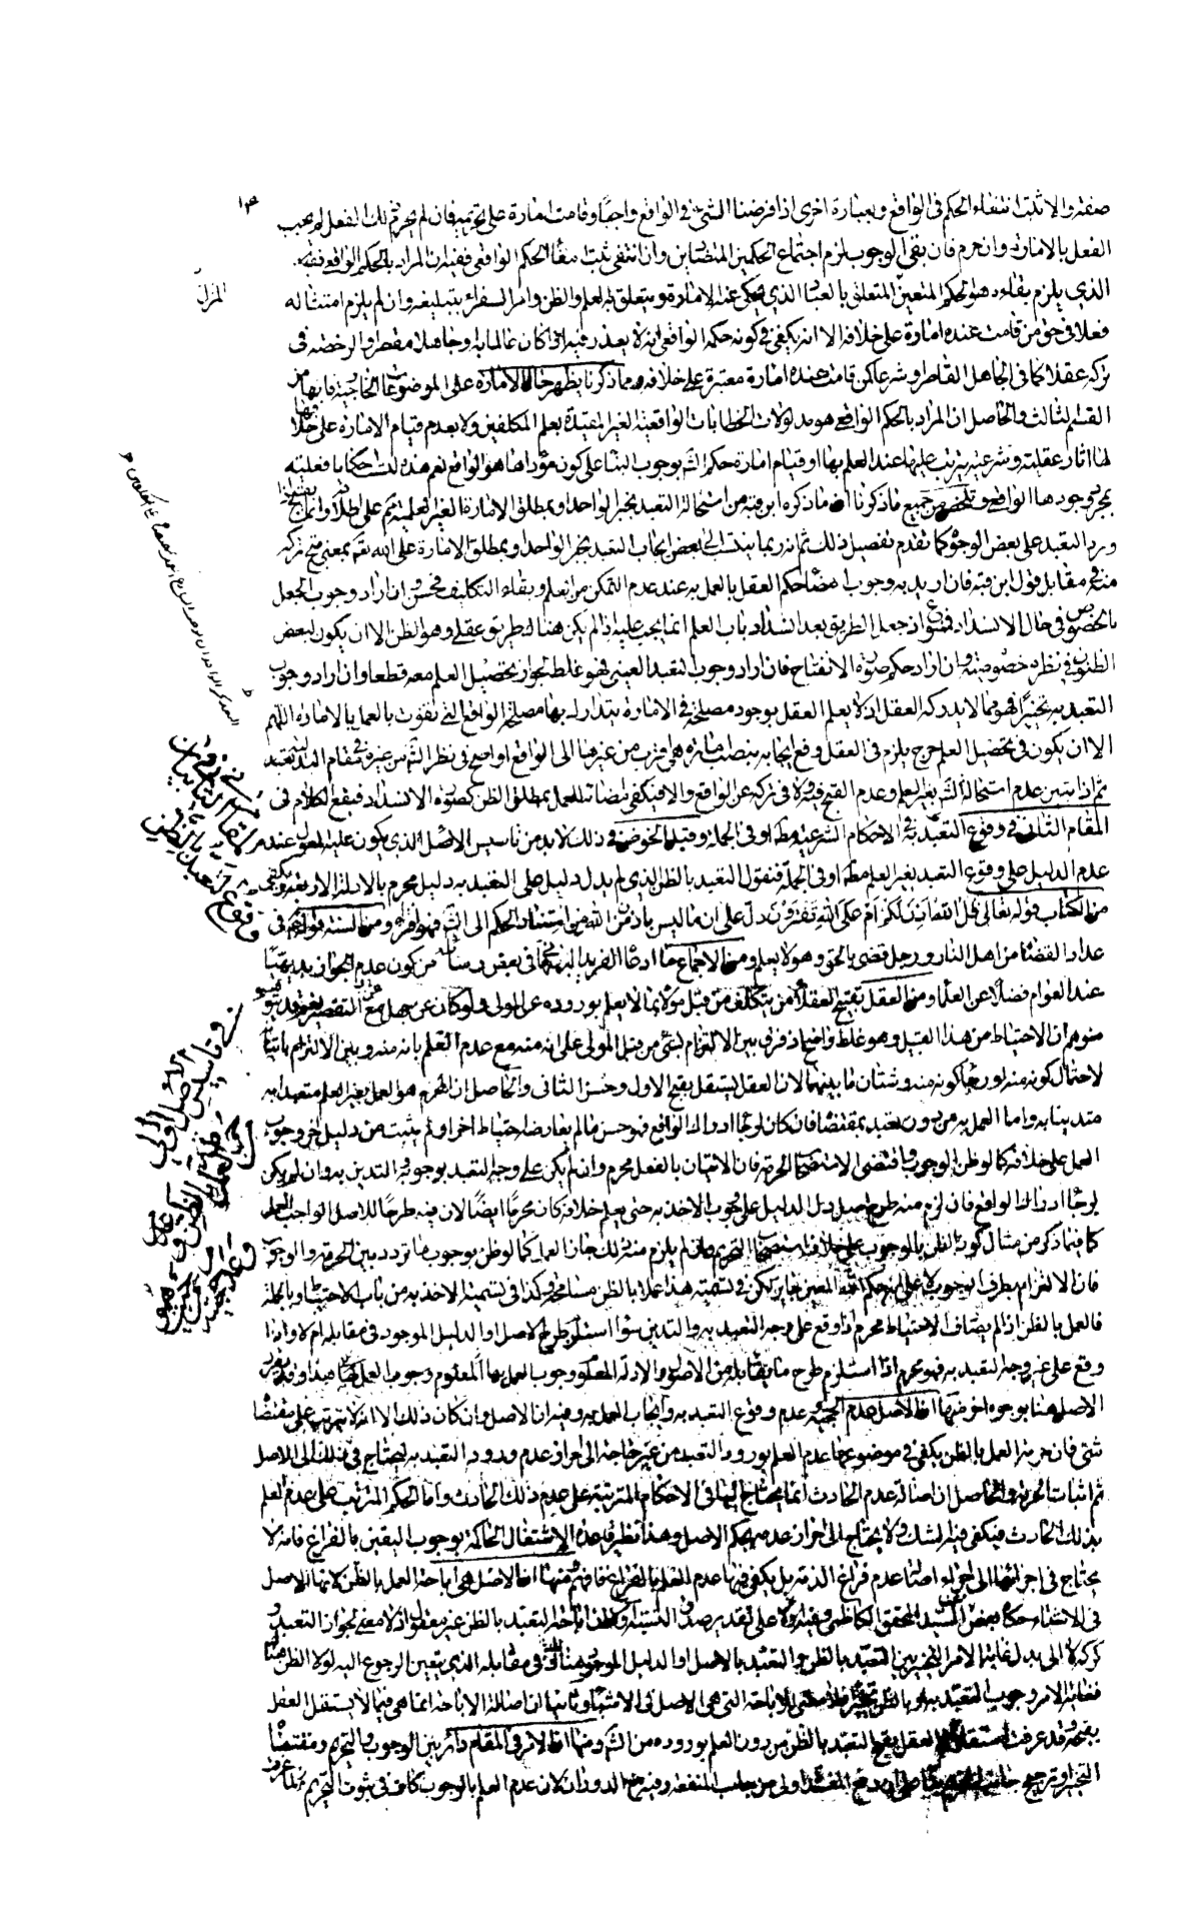 صفته والا ثبت انتفاء الحكم فى الواقع وبعبارة اخرى اذا فرضنا الشئ فى الواقع واجبا وقامت امارة على تحريمه فان لم يحرم ذلك الفعل لم يجب
الفعل بالامارة وان حرم فان بقى الوجوب لزم اجتماع الحكمين المتضادين وان انتفى ثبت انتفاء الحكم الواقعى ففيه ان المراد بالحكم الواقعى
الذى يلزم بقاءه هو الحكم المتعين المتعلق بالعباد الذى يحكى عنه الامارة ويتعلق به العلم والظن وامر السفراء بتبليغه وان لم يلزم امتثاله
فعلا فى حق من قامت عنده امارة على خلافه الا انه يكفى فى كونه حكمه الواقعى انه لا يعذر فيه اذا كان عالما به او جاهلا مقصرا والرخصة فى
تركه عقلا كما فى الجاهل القاصر او شرعا كمن قامت عنده امارة معتبرة على خلافه ومما ذكرنا يظهر حال الامارة على الموضوعات الخارجية فانها من
القسم الثالث والحاصل ان المراد بالحكم الواقعى هو مدلولات الخطابات الواقعية الغير المقيدة بعلم المكلفين ولا بعدم قيام الامارة على خلافها
لها اثار عقلية وشرعية يترتب عليها عند العلم بها او قيام امارة حكم الشارع بوجوب البناء على كون مؤداها هو الواقع نعم هذه ليست احكاما فعلية
بمجرد وجودها الواقعى وتلخص من جميع ما ذكرنا ان ما ذكره ابن قبه من استحالة التعبد بخبر الواحد او بمطلق الامارة الغير العلمية ممنوع على اطلاقه وانما يقبح اذا
ورد التعبد على بعض الوجوه كما تقدم تفصيل ذلك ثم انه ربما ينسب الى بعض ايجاب التعبد بخبر الواحد او بمطلق الامارة على الله تعالى بمعنى قبح تركه
منه فى مقابل قول ابن قبه فان اريد به وجوب امضاء حكم العقل بالعمل به عند عدم التمكن من العلم وبقاء التكليف فحسن وان اراد وجوب الجعل
بالخصوص فى حال الانسداد فممنوع اذ جعل الطريق بعد انسداد باب العلم انما يجب عليه اذا لم يكن هناك طريق عقلى وهو الظن الا ان يكون لبعض
الظنون فى نظره خصوصية وان اراد حكم صورة الانفتاح فان اراد وجوب التعبد العينى فهو غلط لجواز تحصيل العلم معه قطعا وان اراد وجوب
التعبد به تخييرا فهو مما لا يدركه العقل اذ لا يعلم العقل بوجود مصلحة فى الامارة يتدارك بها مصلحة الواقع التى تفوت بالعمل بالامارة اللهم
الا ان يكون فى تحصيل العلم حرج يلزم فى العقل رفع ايجابه بنصب امارة هى اقرب من غيرها الى الواقع او اصح فى نظر الشارع من غيره فى مقام البدلية
ثم اذا تبين عدم استحالة تعبد الشارع بغير العلم وعدم القبح فيه ولا فى تركه فيقع الكلام فى
المقام الثانى فى وقوع التعبد به فى الاحكام الشرعية مطلقا او فى الجملة وقبل الخوض فى ذلك لا بد من تاسيس الاصل الذى يكون عليه المعول عند
عدم الدليل على وقوع التعبد بغير العلم مطلقا او فى الجملة فنقول التعبد بالظن الذى لم يدل دليل على التعبد به دليل محرم بالادلة الاربعة ويكفى
من الكتاب قوله تعالى قل الله اذن لكم ام على الله تفترون دل على ان ما ليس باذن من الله من اسناد الحكم الى الشارع فهو افتراء ومن السنة قوله فى
عداد القضاة من اهل النار ورجل قضى بالحق وهو لا يعلم ومن الاجماع ما ادعاه الفريد البهبهانى فى بعض رسائله من كون عدم الجواز بديهيا
عند العوام فضلا عن العلماء ومن العقل تقبيح العقلاء من يتكلف من قبل مولاه بما لا يعلم بوروده عن المولى ولو كان عن جهل مع التقصير نعم قد
يتوهم ان الاحتياط من هذا القبيل وهو غلط واضح اذ فرق بين الالتزام بشئ من قبل المولى على انه منه مع عدم العلم بانه منه وبين الالتزام باتيانه
لاحتمال كونه منه او رجاء كونه منه وشتان ما بينهما لان العقل يستقل بقبح الاول وحسن الثانى والحاصل ان المحرم هو العمل بغير العلم متعبدا به
متدينا به واما العمل به من دون تعبد بمقتضاه فان كان لرجاء ادراك الواقع فهو حسن ما لم يعارضه احتياط اخر او لم يثبت من دليل اخر وجوب
العمل على خلافه كما لو ظن الوجوب واقتضى الاستصحاب الحرمة فان الاتيان بالفعل محرم وان لم يكن على وجه التعبد بوجوبه والتدين به وان لم يكن
لرجاء ادراك الواقع فان لزم منه طرح اصل دل الدليل على وجوب الاخذ به حتى يعلم خلافه كان محرما ايضا لان فيه طرحا للاصل الواجب العمل
كما فيما ذكر من مثال كون الظن بالوجوب على خلاف استصحاب التحريم وان لم يلزم منه ذلك جاز العمل كما لو ظن بوجوب ما تردد بين الحرمة والوجوب
فان الالتزام بطرف الوجوب لا على انه حكم الله المعين جايز لكن فى تسمية هذا عملا بالظن مسامحة وكذا فى تسمية الاخذ به من باب الاحتياط وبالجملة
فالعمل بالظن اذا لم يصادف الاحتياط محرم اذا وقع على وجه التعبد به والتدين سواء استلزم طرح الاصل او الدليل الموجود فى مقابله ام لا واذا
وقع على غير وجه التعبد به فهو محرم اذا استلزم طرح ما يقابله من الاصول والادلة المعلوم وجوب العمل بها هذا وقد يقرر
الاصل هنا بوجوه اخر منها ان الاصل عدم الحجية وعدم وقوع التعبد به وايجاب العمل به وفيه ان الاصل وان كان ذلك الا انه لا يترتب على مقتضاه
شئ فان حرمة العمل بالظن يكفى فى موضوعها عدم العلم بورود التعبد من غير حاجة الى احراز عدم ورود التعبد به ليحتاج فى ذلك الى الاصل
ثم اثبات الحرمة والحاصل ان اصالة عدم الحادث انما يحتاج اليها فى الاحكام المترتبة على عدم ذلك الحادث واما الحكم المترتب على عدم العلم
بذلك الحادث فيكفى فيه الشك ولا يحتاج الى احراز عدمه بحكم الاصل وهذا نظير قاعدة الاشتغال الحاكمة بوجوب اليقين بالفراغ فانه لا
يحتاج فى اجرائها الى اجراء اصالة عدم فراغ الذمة بل يكفى فيها عدم العلم بالفراغ فافهم ومنها ان الاصل هى اباحة العمل بالظن لانها الاصل
فى الاشياء حكاه بعض عن السيد المحقق الكاظمى وفيه اولا على تقدير صدق النسبة ان اباحة التعبد بالظن غير معقول اذ لا معنى لجواز التعبد و
تركه لا الى بدل غاية الامر التخيير بين التعبد بالظن والتعبد بالاصل او الدليل الموجود هناك فى مقابله الذى يتعين الرجوع اليه لولا الظن
فغاية الامر وجوب التعبد به او بالظن تخييرا فلا معنى للاباحة التى هى الاصل فى الاشياء وثانيا ان اصالة الاباحة انما هى فيما لا يستقل العقل
بقبحه وقد عرفت استقلال العقل بقبح التعبد بالظن من دون العلم بوروده من الشارع ومنها ان الامر فى المقام دائر بين الوجوب والتحريم ومقتضاه
التخيير او ترجيح جانب التحريم بناء على ان دفع المفسدة اولى من جلب المنفعة وفيه منع الدوران لان عدم العلم بالوجوب كاف فى ثبوت التحريم لما عرفت